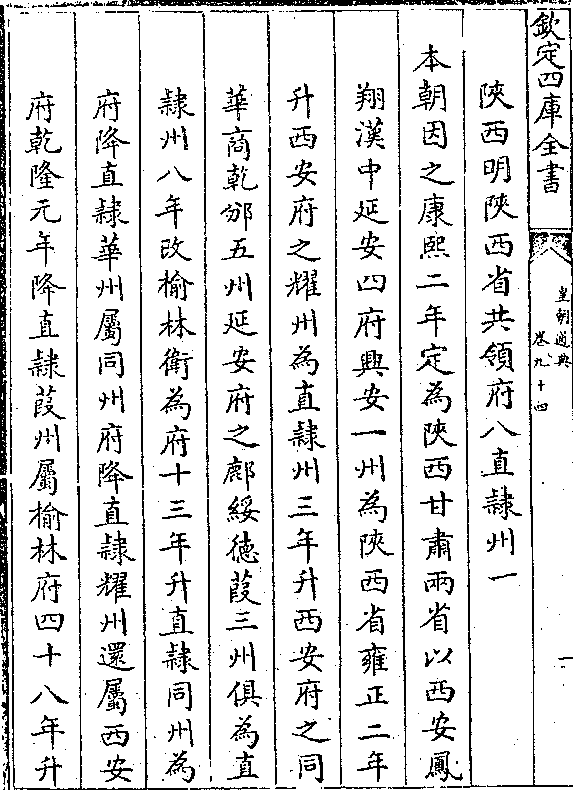 欽定四庫全書
皇朝通典
卷九十四
一
陝西明陝西省共領府八直隸州一
本朝因之康熙二年定為陝西甘肅兩省以西安鳳
翔漢中延安四府興安一州為陝西省雍正二年
升西安府之耀州為直隸州三年升西安府之同
華商乾邠五州延安府之鄜綏德葭三州俱為直
隸州八年改榆林衛為府十三年升直隸同州為
府降直隸華州屬同州府降直隸耀州還屬西安
府乾隆元年降直隸葭州屬榆林府四十八年升